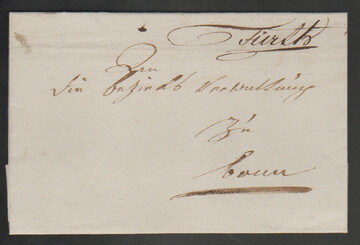 Fürth
An
die bezirks Verwaltung
zu
bonn